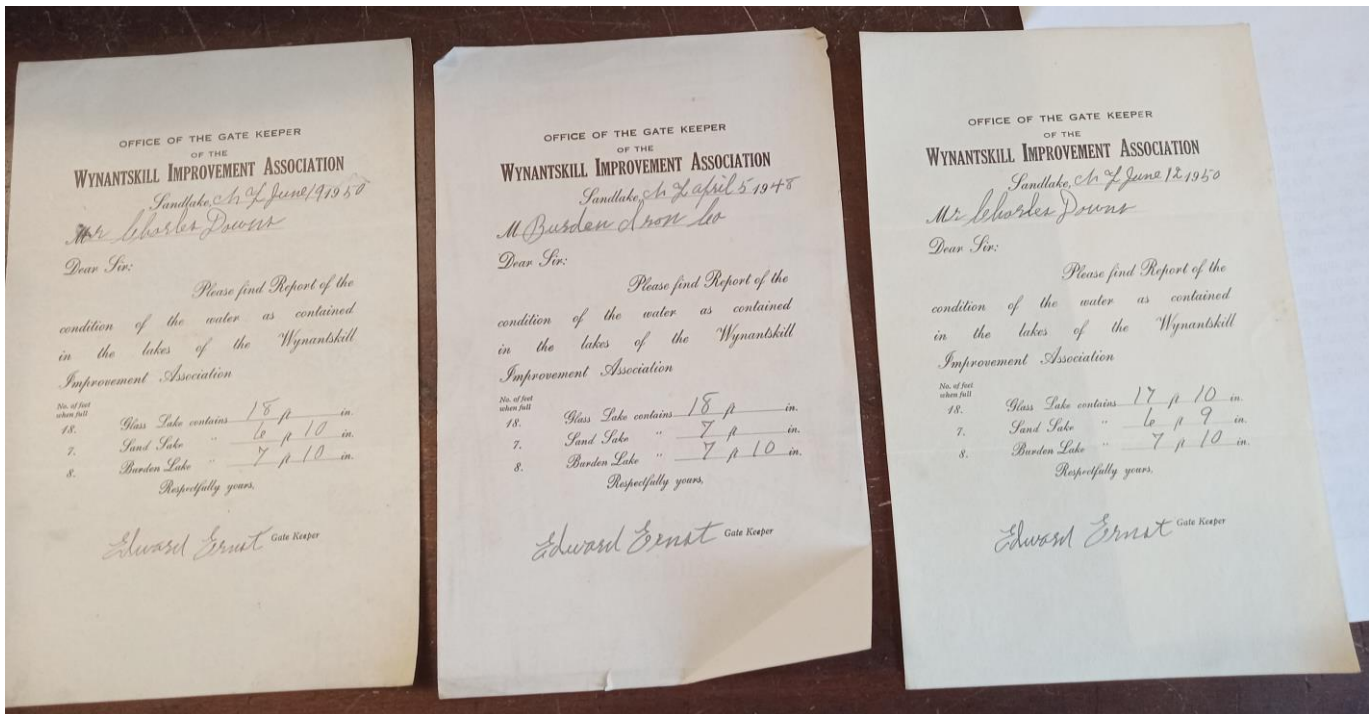 OFFICE OF THE GATE KEEPER
OF THE
WYNANTSKILL IMPROVEMENT ASSOCIATION
Sandlake, N Y June 19 1950
Mr Charles Downs
Dear Sir:
Please find Report of the
condition of the water as contained
in the lakes of the Wynantskill
Improvement Association
No. of feet
when full
18. Glass Lake contains 18 ft in.
7. Sand Lake " 6 ft 10 in.
8. Burden Lake " 7 ft 10 in.
Respectfully yours,
Edward Ernst Gate Keeper
OFFICE OF THE GATE KEEPER
OF THE
WYNANTSKILL IMPROVEMENT ASSOCIATION
Sandlake, N Y April 5 1948
M Burden Iron Co
Dear Sir:
Please find Report of the
condition of the water as contained
in the lakes of the Wynantskill
Improvement Association
No. of feet
when full
18. Glass Lake contains 18 ft in.
7. Sand Lake " 7 ft in.
8. Burden Lake " 7 ft 10 in.
Respectfully yours,
Edward Ernst Gate Keeper
OFFICE OF THE GATE KEEPER
OF THE
WYNANTSKILL IMPROVEMENT ASSOCIATION
Sandlake, N Y June 12 1950
Mr Charles Downs
Dear Sir:
Please find Report of the
condition of the water as contained
in the lakes of the Wynantskill
Improvement Association
No. of feet
when full
18. Glass Lake contains 17 ft 10 in.
7. Sand Lake " 6 ft 9 in.
8. Burden Lake " 7 ft 10 in.
Respectfully yours,
Edward Ernst Gate Keeper